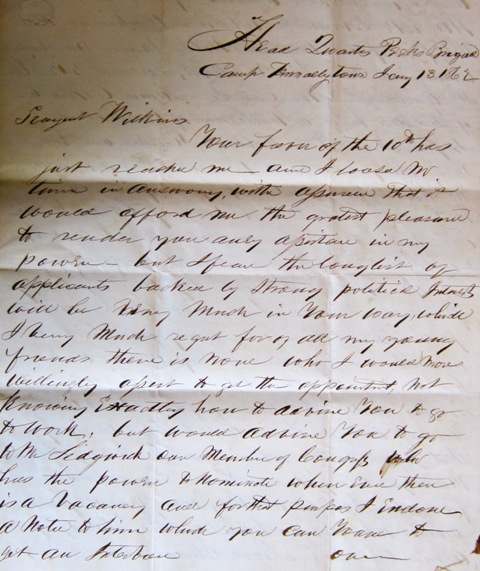 Head Quarters Pecks Brigad
Camp Tennallytown Jany 13 1862
Seargent Wilkins
Your favor of the 10th has
just reached me and I loose no
time in answering, with assurence that it
would afford me the gratest pleasure
to render you any assistanc in my
power but I fear the long list of
applicants backed by strong politica Intrests
will be very much in Your way, which
I very much regret for of all my young
friends there is none who I would more
willingly assist to get the appointmt, not
Knowing Exactly how to advise You to go
to work, but would advise You to go
to Mr Sedgwick our Member of Congss who
has the power to Nominate when Ever there
is a Vacancy and for that purpos I Enclose
a Note to him which you can to
get an Interview our